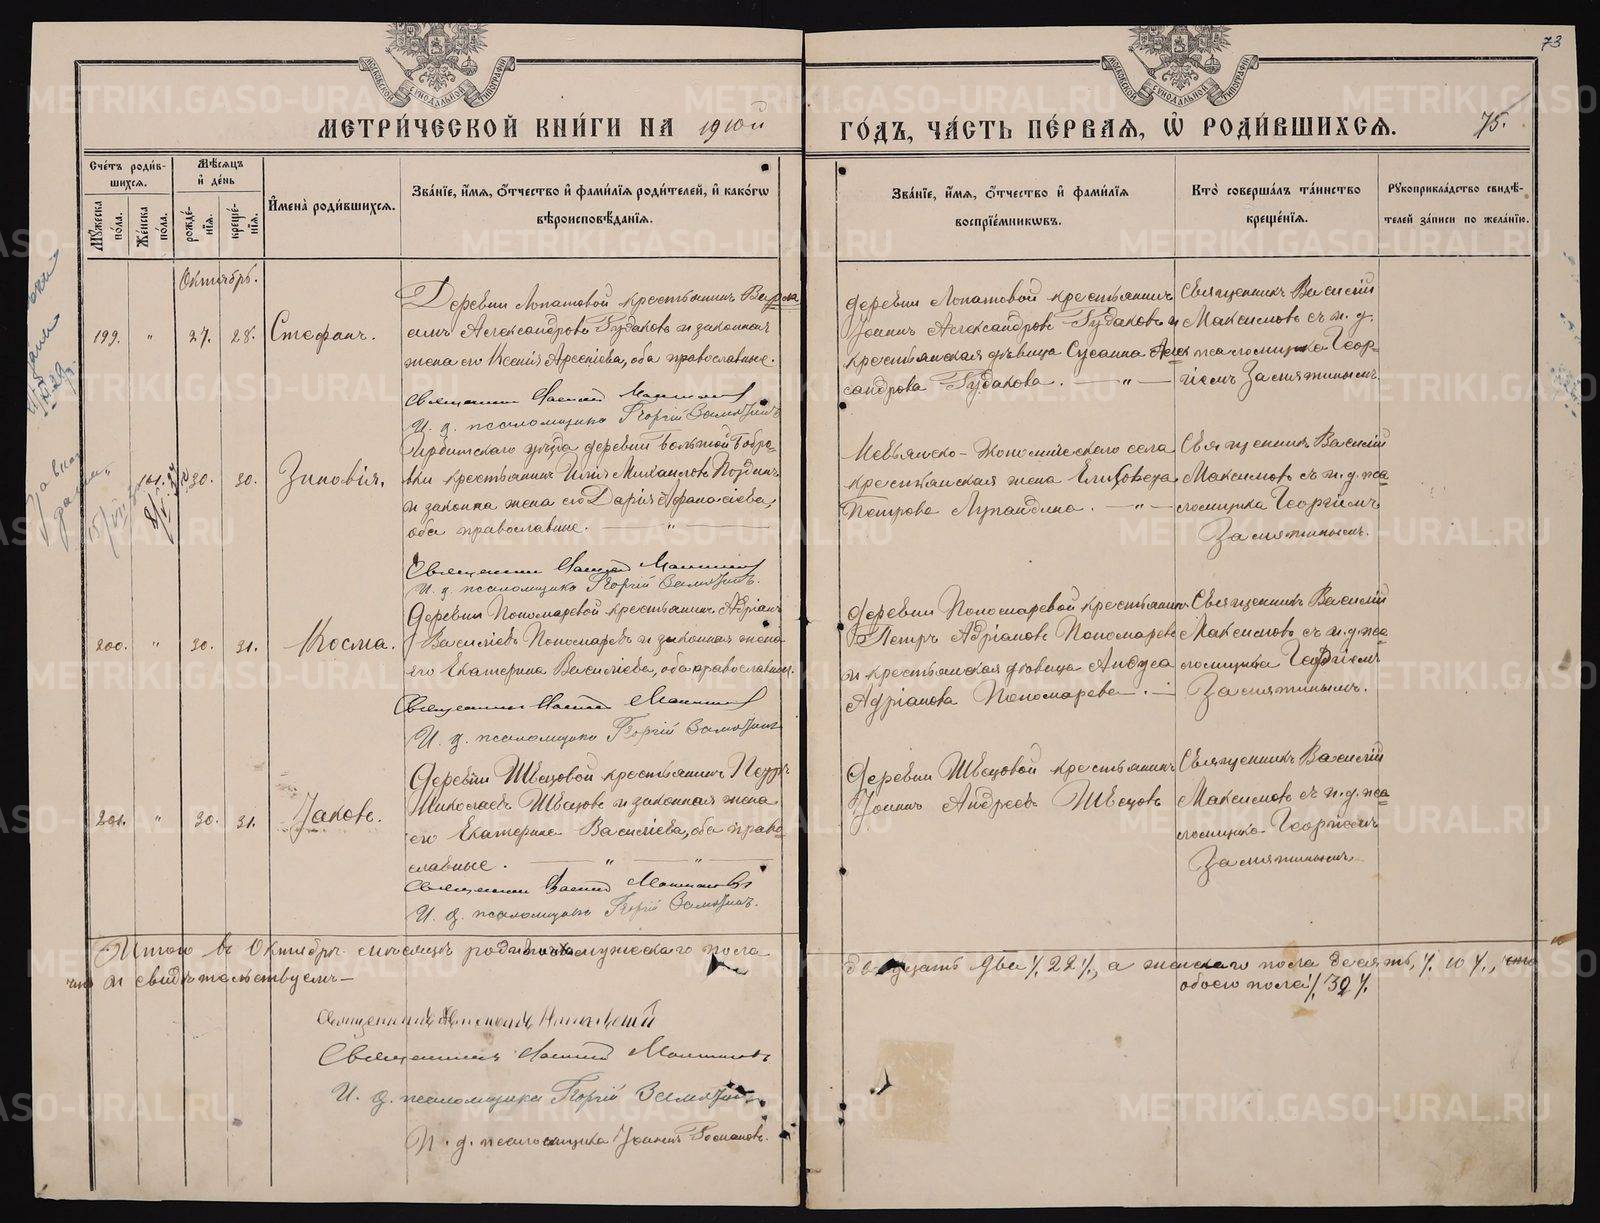 73
МЕТРИ́ЧЕСКОЙ КНИ́ГИ НА 1910й ГО́ДЪ, ЧА́СТЬ ПЕ́РВАЯ, Ѡ РОДИ́ВШИХСЯ. 75.
Сче́тъ роди́в-
шихся.
Мѣ́сяцъ
и де́нь
Му́жеска по́ла.
Же́нска по́ла.
рожде́-
нїя.
креще́-
нїя.
И́мена̀ роди́вшихся.
Зва́нїе, и́мя, о́тчество и фами́лїя роди́телей, и како́гѡ
вѣроисповѣ́данїя.
Зва́нїе, и́мя, о́тчество и фами́лїя
воспрїе́мниковъ.
Кто̀ соверша́лъ та́инство
креще́нїя.
Рукоприкла́дство свидѣ́-
телей за́писи по жела́нїю.
Октябрь.
199. " 27. 28. Стефанъ.
Деревни Лопатовой крестьянинъ Варла
амъ Александровъ Гудаковъ и законная
жена его Ксенія Арсеніева, оба православные.
Священникъ Василій Максимовъ
И. д. псаломщика Георгій Замятинъ
деревни Лопатовой крестьянинъ
Іоаннъ Александровъ Гудаковъ и
крестьянская дѣвица Сусанна Алек
сандрова Гудакова. — " —
Священникъ Василій
Максимовъ съ и. д.
псаломщика Геор-
гіемъ Замятинымъ.
101. 30. 30. Зиновія.
Ирбитскаго уѣзда деревни Большой Бобро
вки крестьянинъ Илія Михаиловъ
и законная жена его Дарія Афанасіева,
оба православные. — " —
Священникъ Василій Максимовъ
И. д. псаломщика Георгій Замятинъ.
Невьянско-Экономическаго села
крестьянская жена Елизавета
Петрова Лупандина. — " —
Священникъ Василій
Максимовъ съ и. д. пса
ломщика Георгіемъ
Замятинымъ.
200. " 30. 31. Косма.
Деревни Пономаревой крестьянинъ Адріанъ
Василіевъ Пономаревъ и законная жена
его Екатерина Василіева, оба православные.
Священникъ Василій Максимовъ
И. д. псаломщика Георгій Замятинъ
деревни Пономаревой крестьянинъ
Петръ Адріановъ Пономаревъ
и крестьянская дѣвица
Адріанова Пономарева. —
Священникъ Василій
Максимовъ съ и. д. пса
ломщика Георгіемъ
Замятинымъ.
201. " 30. 31. Іаковъ.
Деревни Швецовой крестьянинъ Петръ
Николаевъ Швецовъ и законная жена
его Екатерина Василіева, оба право
славные. — " — " —
Священникъ Василій Максимовъ
И. д. псаломщика Георгій Замятинъ.
Деревни Швецовой крестьянинъ
Іоаннъ Андреевъ Швецовъ
Священникъ Василій
Максимовъ съ и. д. пса
ломщика Георгіемъ
Замятинымъ
Итого въ Октябрѣ мѣсяцѣ родилось мужескаго пола
двадцать два %. 22 %., а женскаго пола десять, %. 10 %.,
обоего пола %. 32 %.
что и свидѣтельствуемъ—
Священникъ
Священникъ Василій Максимовъ
И. д. псаломщика Георгій Замятинъ
И. д. псаломщика Іоаннъ